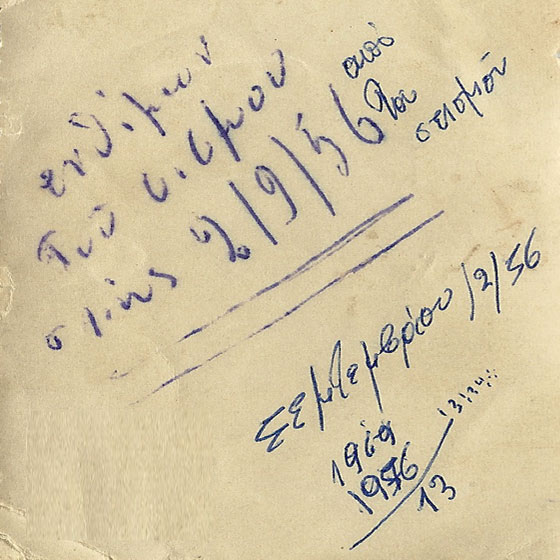 ενθίμιον
του σισμου
στίς 2/9/56
από
του
σεισμόν
Σεμτεμβρίου /2/56
1969
1956
13